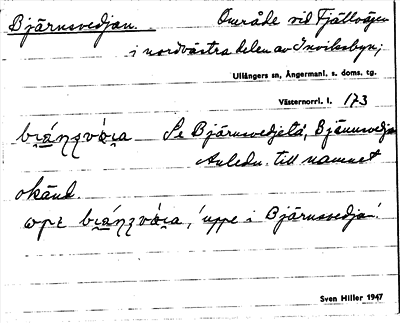 Björnsvedjan. Område vid Fjällvägen
i nordvästra delen av Invikssbyn;
Ullångers sn, Ångermanl. s. doms. tg.
Västernorrl. l. 173
Se Björnsvedjelå, Björnsvedje
Anledn. till namnet
okänd.
'uppe i Björnsvedjan'.
Sven Hiller 1947